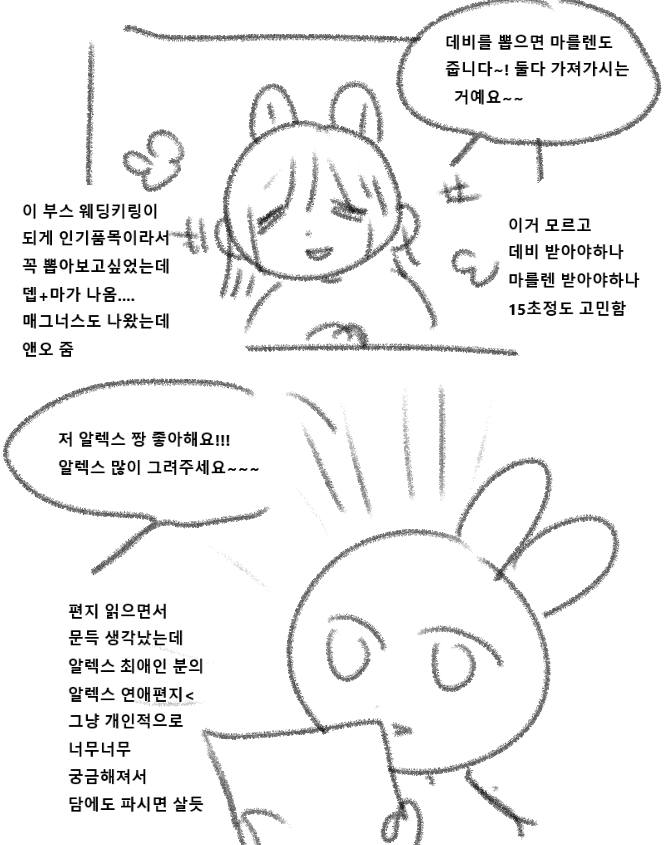 데비를 뽑으면 마를렌도
줍니다~! 둘다 가져가시는
거예요~~
이 부스 웨딩키링이
되게 인기품목이라서
꼭 뽑아보고싶었는데
뎁+마가 나옴....
매그너스도 나왔는데
앤오 줌
이거 모르고
데비 받아야하나
마를렌 받아야하나
15초정도 고민함
저 알렉스 짱 좋아해요!!!
알렉스 많이 그려주세요~~~
편지 읽으면서
문득 생각났는데
알렉스 최애인 분의
알렉스 연애편지<
그냥 개인적으로
너무너무
궁금해져서
담에도 파시면 살듯